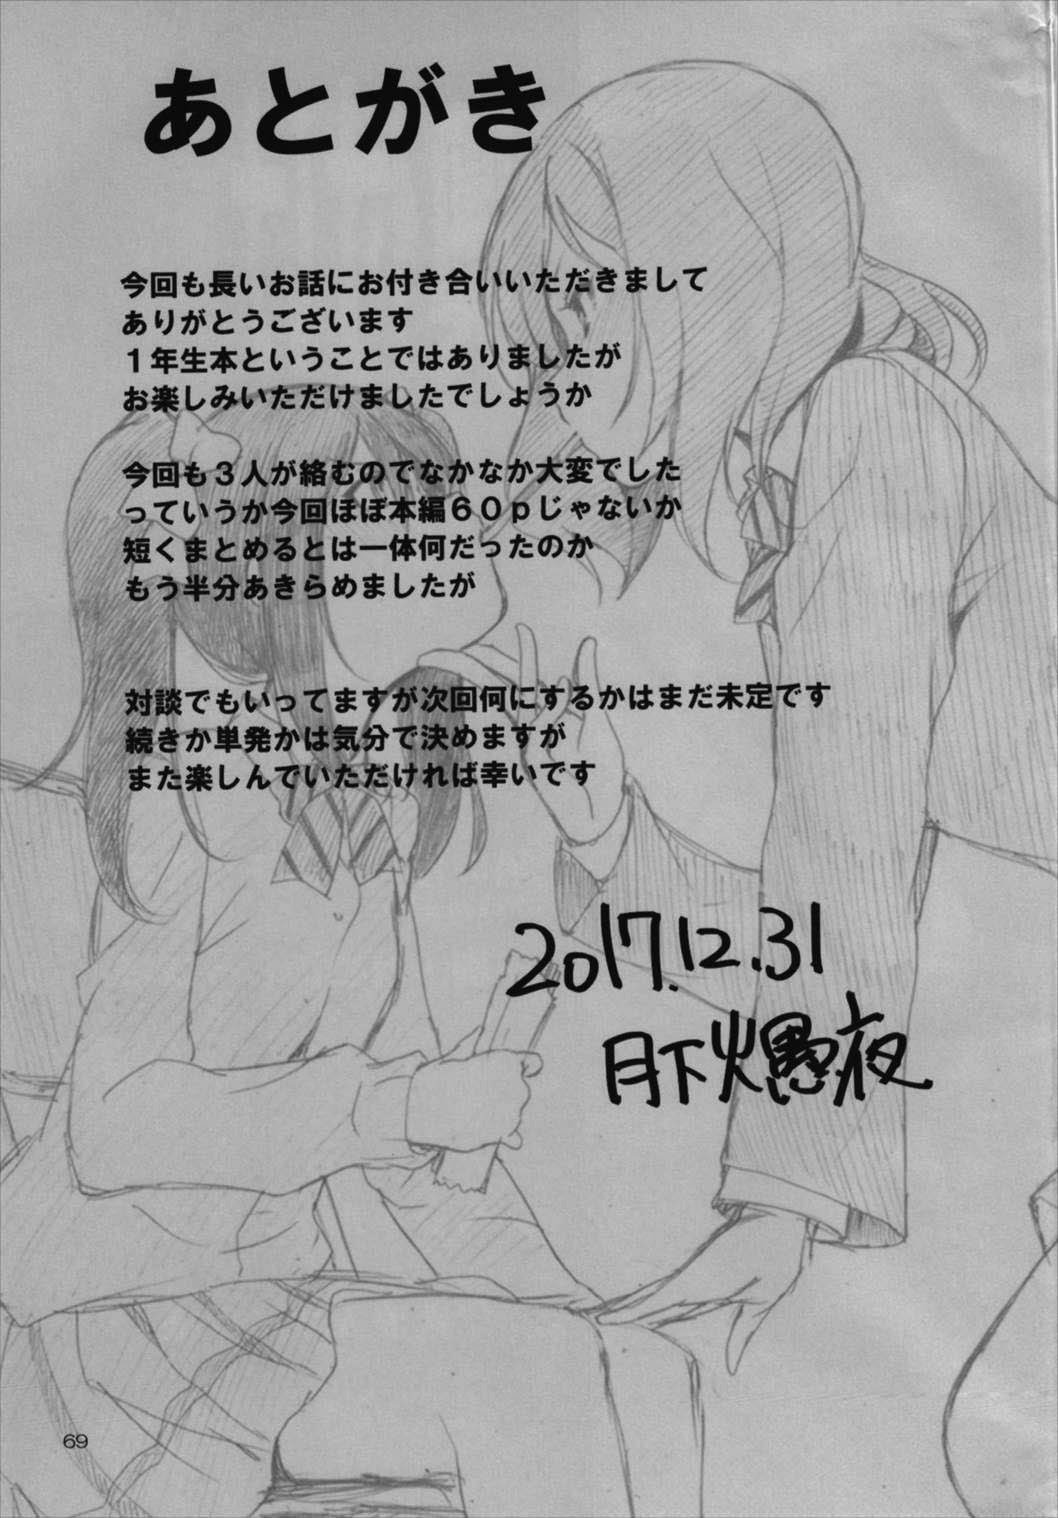 あとがき
今回も長いお話にお付き合いいただきまして
ありがとうございます
１年生本ということではありましたが
お楽しみいただけましたでしょうか
今回も３人が絡むのでなかなか大変でした
っていうか今回ほぼ本編６０ｐじゃないか
短くまとめるとは一体何だったのか
もう半分あきらめましたが
対談でもいってますが次回何にするかはまだ未定です
続きか単発かは気分で決めますが
また楽しんでいただければ幸いです
2017.12.31
月下火愚夜
69